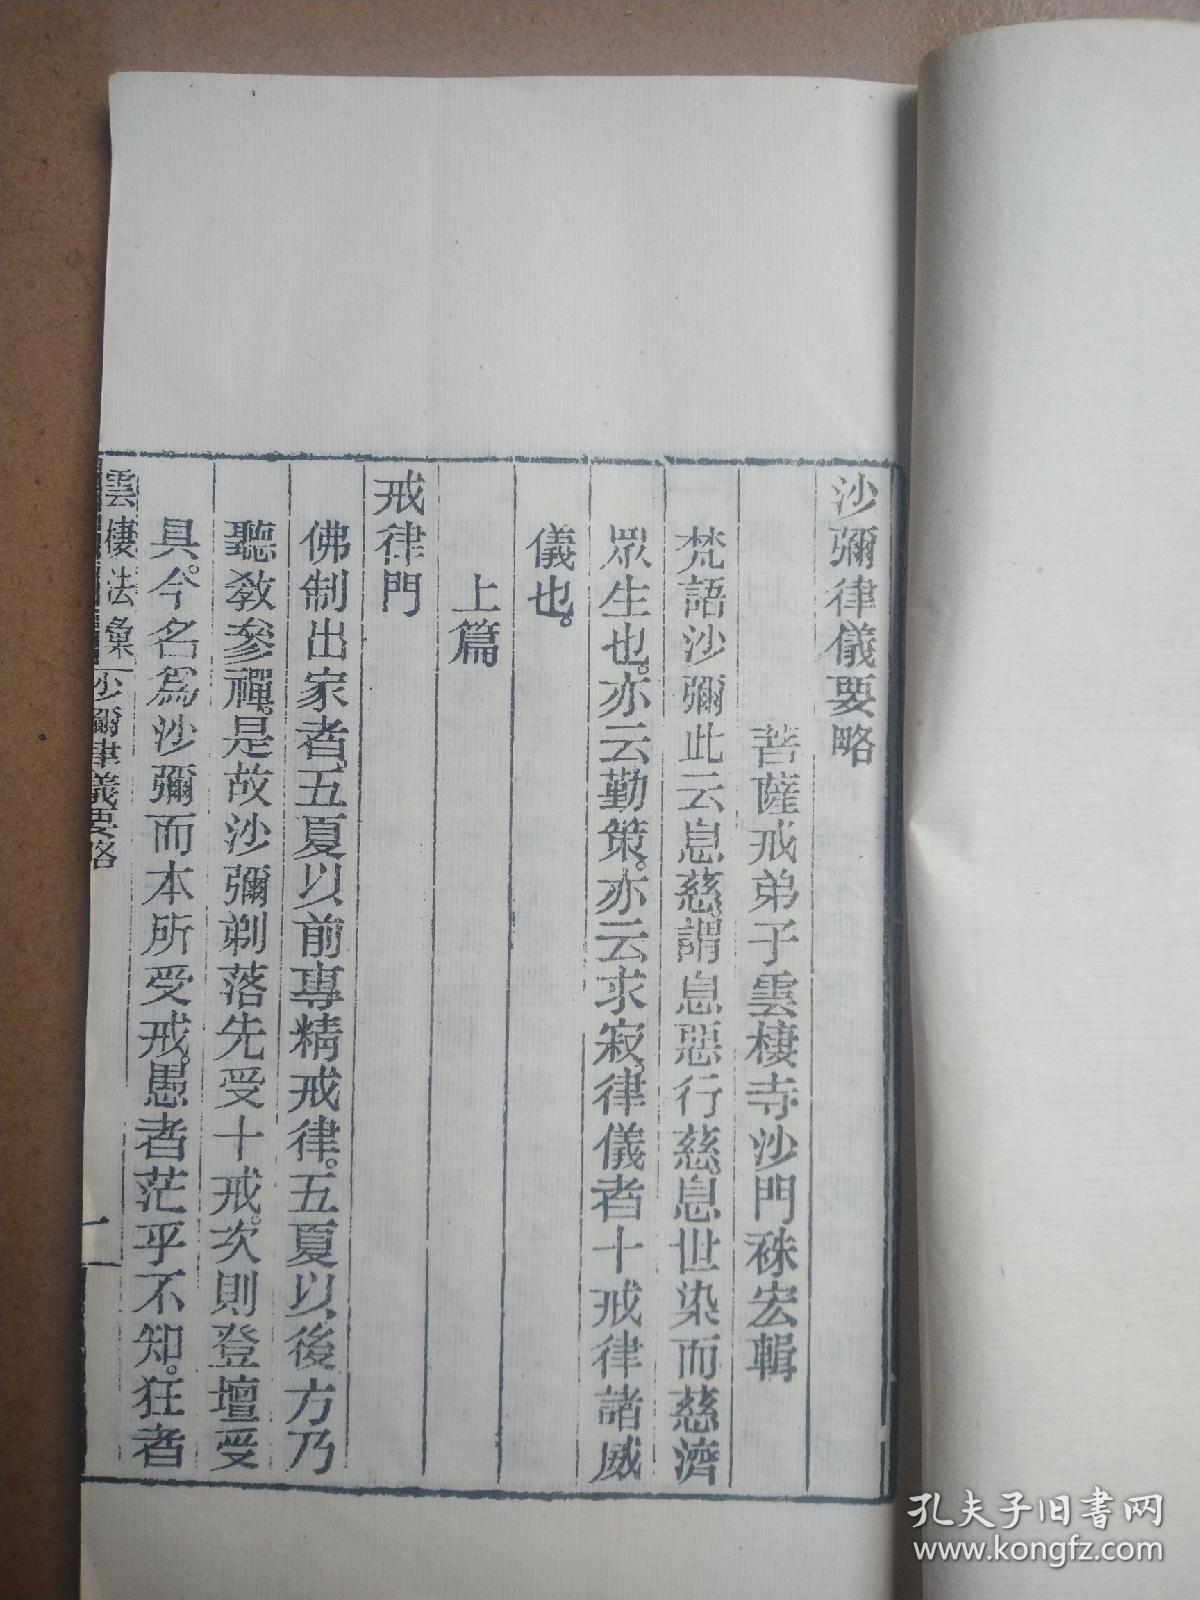 沙彌律儀要略
菩薩戒弟子雲棲寺沙門袾宏輯
梵語沙彌此云息慈。謂息惡行慈。息世染而慈濟
眾生也。亦云勤策。亦云求寂。律儀者十戒律諸威
儀也。
上篇
戒律門
佛制出家者、五夏以前專精戒律。五夏以後方乃
聽敎參禪。是故沙彌剃落先受十戒。次則登壇受
具。今名爲沙彌而本所受戒。愚者茫乎不知。狂者
雲棲法彙 沙彌律儀要略
二
孔夫子旧书网
www.kongfz.com